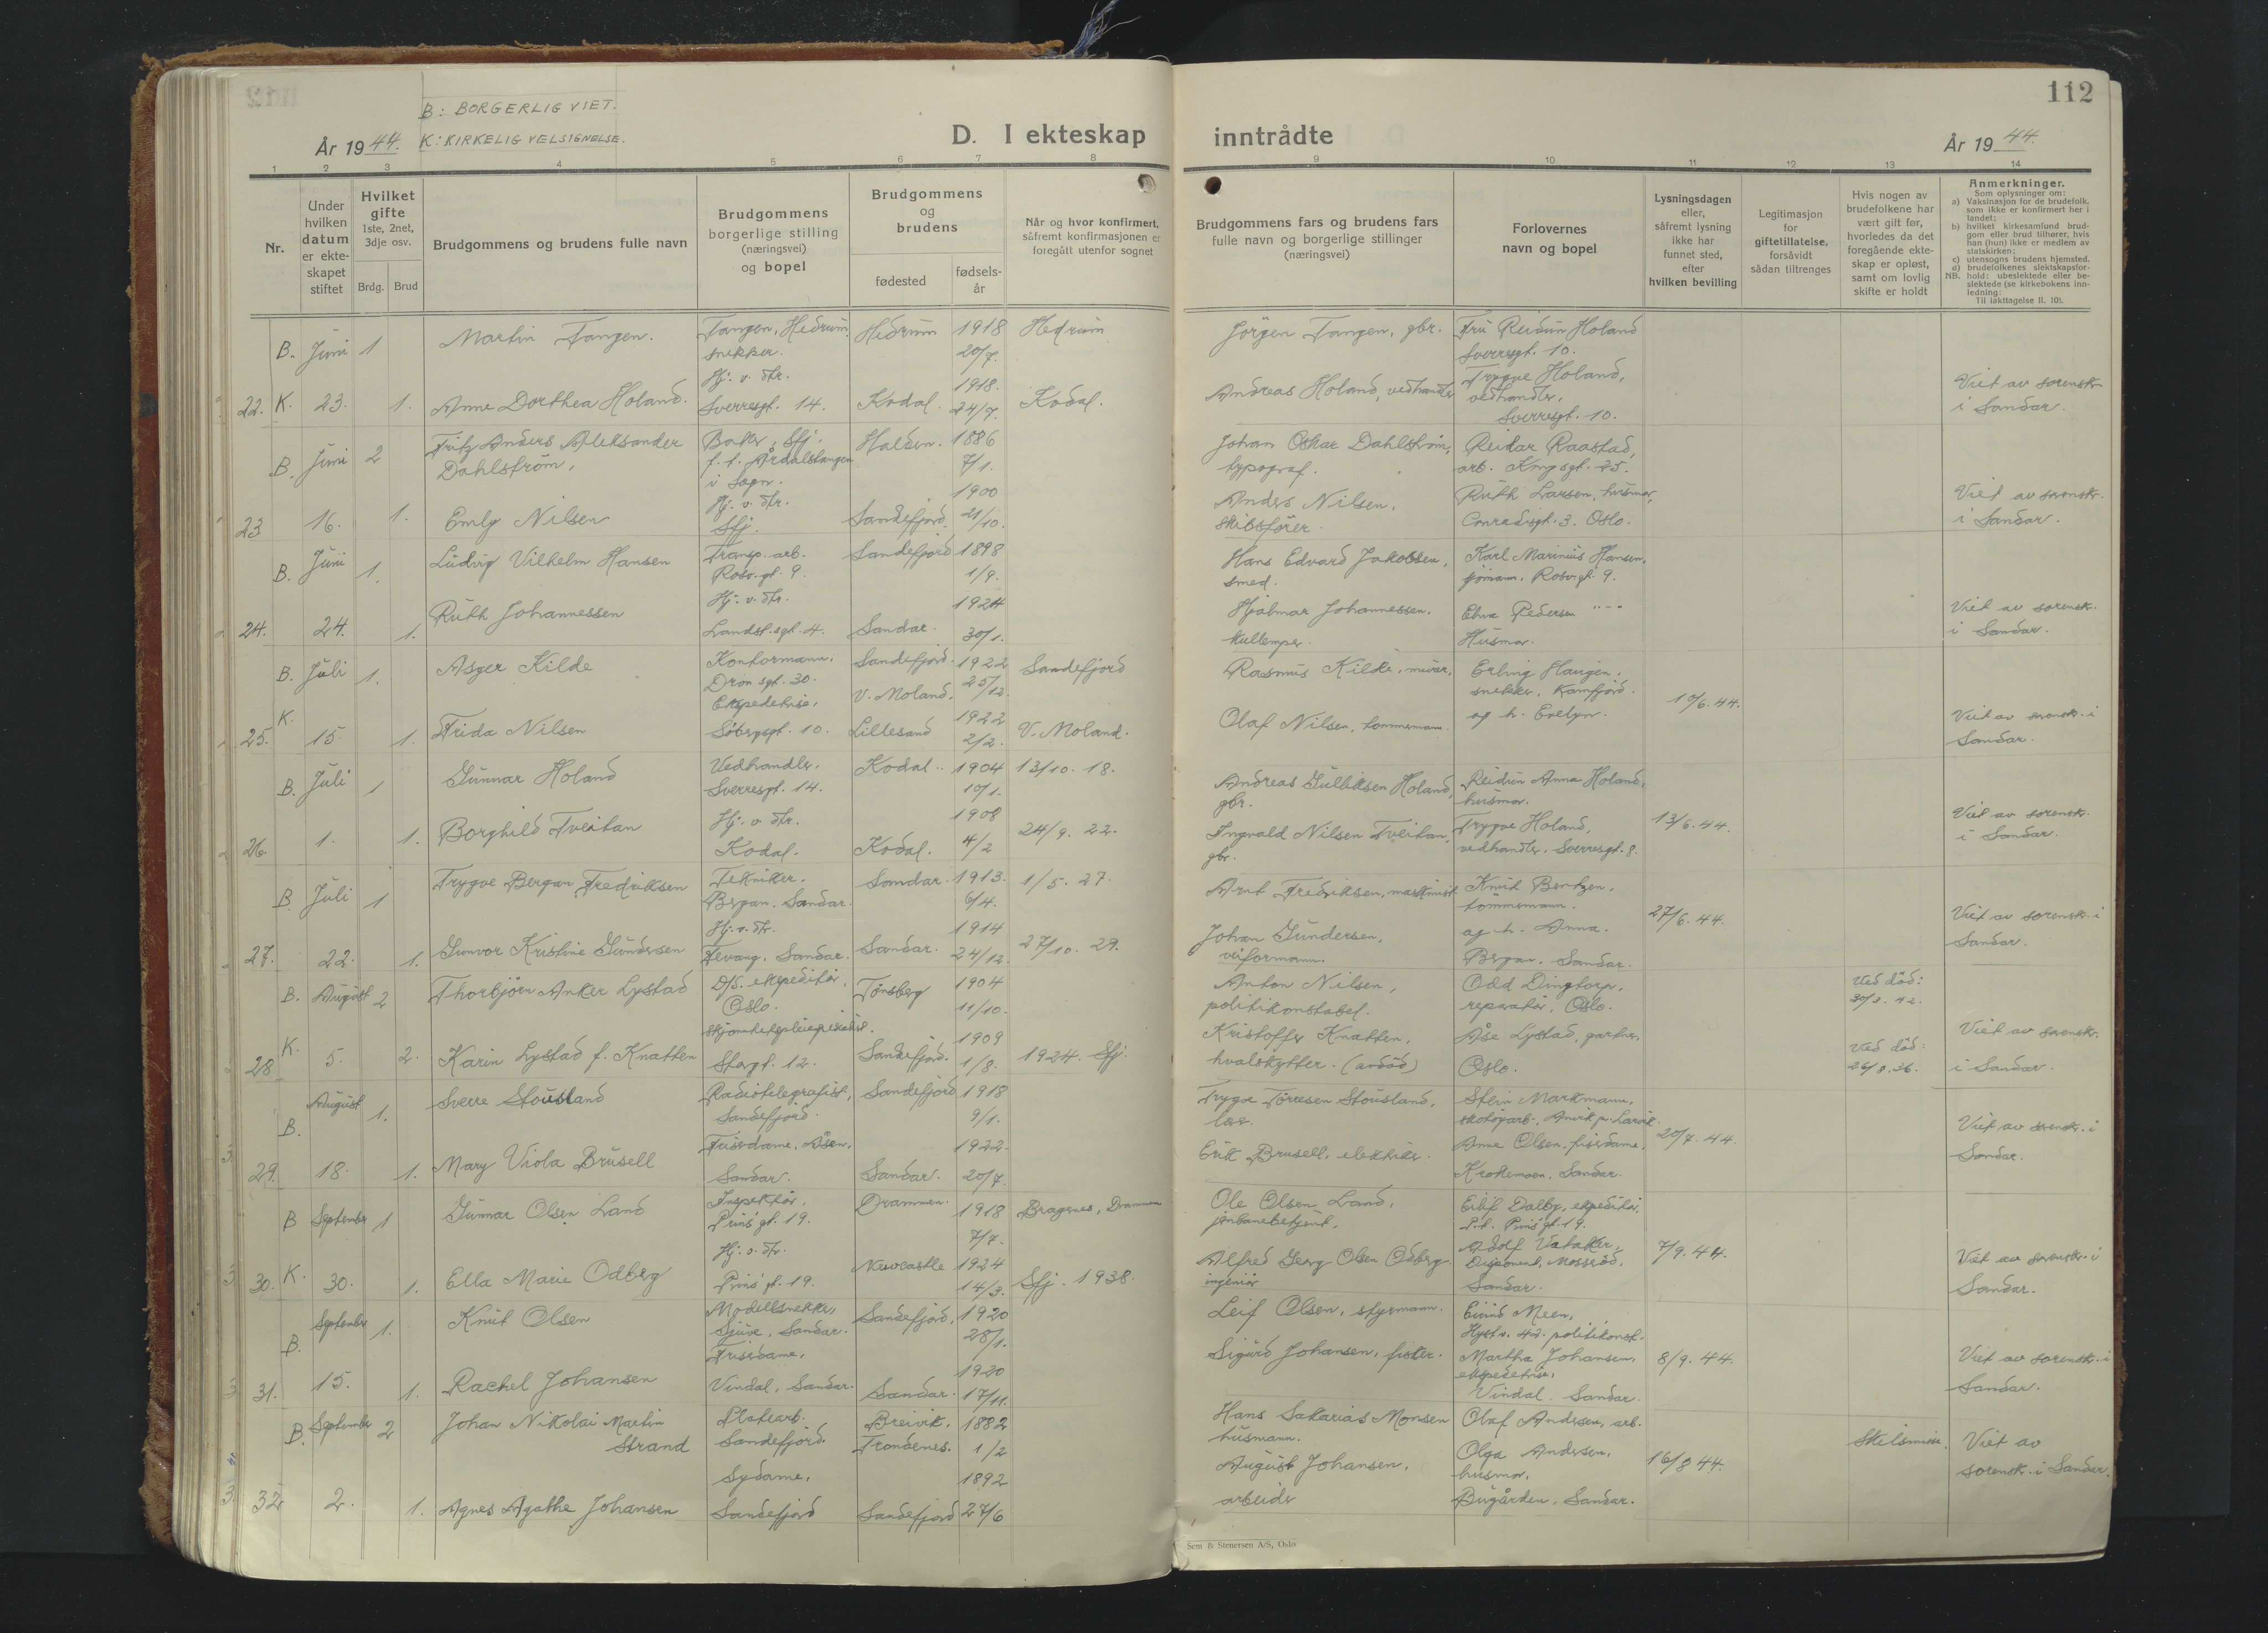 112
B: BORGERLIG VIET.
K: KIRKELIG VELSIGNELSE.
År 1944.
D. I ekteskap inntrådte
År 1944.
1 2 3 4 5 6 7 8 9 10 11 12 13 14
Nr.
Under hvilken datum er ekte-skapet stiftet
Hvilket gifte 1ste, 2net, 3dje osv.
Brdg. Brud
Brudgommens og brudens fulle navn
Brudgommens borgerlige stilling (næringsvei) og bopel
Brudgommens og brudens
fødested
fødsels-år
Når og hvor konfirmert, såfremt konfirmasjonen er foregått utenfor sognet
Brudgommens fars og brudens fars fulle navn og borgerlige stillinger (næringsvei)
Forlovernes navn og bopel
Lysningsdagen eller, såfremt lysning ikke har funnet sted, efter hvilken bevilling
Legitimasjon for giftetillatelse, forsåvidt sådan tiltrenges
Hvis nogen av brudefolkene har vært gift før, hvorledes da det foregående ekte-skap er opløst, samt om lovlig skifte er holdt
Anmerkninger.
Som oplysninger om:
a) Vaksinasjon for de brudefolk, som ikke er konfirmert her i landet;
b) hvilket kirkesamfund brud-gom eller brud tilhører, hvis han (hun) ikke er medlem av statskirken;
c) utensogns brudens hjemsted.
d) brudefolkenes slektskapsfor-
NB. hold: ubeslektede eller be-slektede (se kirkebokens inn-ledning:
Til iakttagelse II. 10).
B. Juni 1 Martin Tangen. Tangen, Hedrum snekker. Hedrum 1918 20/7. Hedrum Jörgen Tangen, gbr. Fru Reidun Holand Sverresgt. 10.
22. K. 23. 1. Anne Dorthea Holand. Hj. v. dtr. Sverresgt. 14. Kodal. 1918. 24/7. Kodal. Andreas Holand, vedhandler Trygve Holand, vedhandler, Sverresgt. 10. Viet av sorenskr. i Sandar.
B. Juni 2 Fritz Anders Aleksander Dahlström, Baker, Sfj. f. t. Årdalstangen i Sogn. Halden. 1886 7/1. Johan Oskar Dahlström, typograf. Reidar Raastad, arb. Kmpsgt. 25.
23 16. 1. Emly Nilsen Hj. v. dtr. Sfj. Sandefjord. 1900 21/10. Anders Nilsen, skibsförer. Ruth Larsen, husmor, Conradisgt. 3. Oslo. Viet av sorenskr. i Sandar.
B. Juni 1. Ludvig Vilhelm Hansen Transp. arb. Rosv.gt. 9. Sandefjord 1898 1/9. Hans Edvard Jakobsen, smed. Karl Marinius Hansen, sjömann. Rosv.gt. 9.
24. 24. 1. Ruth Johannessen Hj. v. dtr. Landst.sgt. 4. Sandar. 1924 30/1. Hjalmar Johannessen. kullemper. Elna Pedersen "-" Husmor. Viet av sorensk. i Sandar.
B. Juli 1. Asger Kilde Kontormann. Dron.sgt. 30. Sandefjord. 1922 25/12. Sandefjord Rasmus Kilde, murer, Erling Haugen, snekker, Kamfjord.
K.
25. 15. 1. Frida Nilsen Ekspeditrise, Söbergsgt. 10. V. Moland, Lillesand 1922 2/2. V. Moland. Olaf Nilsen, tømmermann. og h. Evelyn. 10/6. 44. Viet av sorensk. i Sandar.
B. Juli 1 Gunnar Holand Vedhandler. Sverresgt. 14. Kodal. 1904 10/1. 13/10. 18. Andreas Gulliksen Holand, gbr. Reidun Anna Holand, husmor.
26. 1. 1. Borghild Tveitan Hj. v. dtr. Kodal. Kodal. 1908 4/2 24/9. 22. Ingvald Nilsen Tveitan, gbr. Trygve Holand, vedhandler. Sverresgt. 8. 13/6. 44. Viet av sorensk. i Sandar.
B. Juli 1 Trygve Bergan Fredriksen Tekniker. Bergan. Sandar. Sandar. 1913. 6/4. 1/5. 27. Arnt Fredriksen, maskinist Knut Bentzen. tømmermann.
27. 22. 1. Gunvor Kristine Gundersen Hj. v. dtr. Fevang. Sandar. Sandar. 1914 24/12. 27/10. 29. Johan Gundersen, veiformann. og h. Anna. Bergan. Sandar. 27/6. 44. Viet av sorensk. i Sandar.
B. August 2 Thorbjörn Anker Lystad D/S. ekspeditör, Oslo. Tönsberg 1904 11/10. Anton Nilsen, politikonstabel. Odd Dingtorp, reparatör, Oslo. Ved död: 30/3. 42.
K.
28 5. 2. Karin Lystad f. Knatten skjønnhetspleiespesialist. Storgt. 12. Sandefjord. 1909 1/8. 1924. Sfj. Kristoffer Knatten, hvalskytter. (avdöd) Åse Lystad, gartner, Oslo. Ved död: 26/8. 36. Viet av sorensk. i Sandar.
B. August 1. Sverre Stousland Radiotelegrafist, Sandefjord. Sandefjord 1918 9/1. Trygve Törresen Stousland, lærer. Stein Markmann, skotöyarb. Anvik p. Larvik.
29. 18. 1. Mary Viola Brusell Friserdame, Åsen, Sandar. Sandar. 1922. 20/7. Erik Brusell, elektriker. Anne Olsen, friserdame, Krokemoen, Sandar. 20/7. 44. Viet av sorensk. i Sandar.
B September 1 Gunnar Olsen Land Inspektör, Prins gt. 19. Drammen. 1918 7/7. Bragernes, Drammen Ole Olsen Land, jernbanebetjent, Eilif Dalby, ekspeditör, P.t. Prins gt. 19.
30. K. 30. 1. Ella Marie Odberg Hj. v. dtr. Prins gt. 19. Newcastle 1924 14/3. Sfj. 1938. Alfred Georg Olsen Odberg ingeniör Adolf Vataker, Disponent, Mosseröd, Sandar. 7/9. 44. Viet av sorensk. i Sandar.
B. September 1. Knut Olsen Modellsnekker, Gjuve, Sandar. Sandefjord, 1920 28/1. Leif Olsen, styrmann. Eivind Meen, Hystv. 42. politikonst.
31. 15. 1. Rachel Johansen Friserdame, Vindal, Sandar. Sandar. 1920 17/11. Sigurd Johansen, fisker. Martha Johansen, ekspeditrise, Vindal. Sandar. 8/9. 44. Viet av sorensk. i Sandar.
B. September 2 Johan Nikolai Martin Strand Platearb. Sandefjord. Breivik, Trondenes. 1882 1/2 Hans Sakarias Monsen husmann. Olaf Andersen, arb. Skilsmisse.
32 2. 1. Agnes Agathe Johansen Sydame, Sandefjord Sandefjord 1892 27/6 August Johansen, arbeider Olga Andersen, husmor, Bugården, Sandar. 16/8 44. Viet av sorensk. i Sandar.
Sem & Stenersen A/S, Oslo